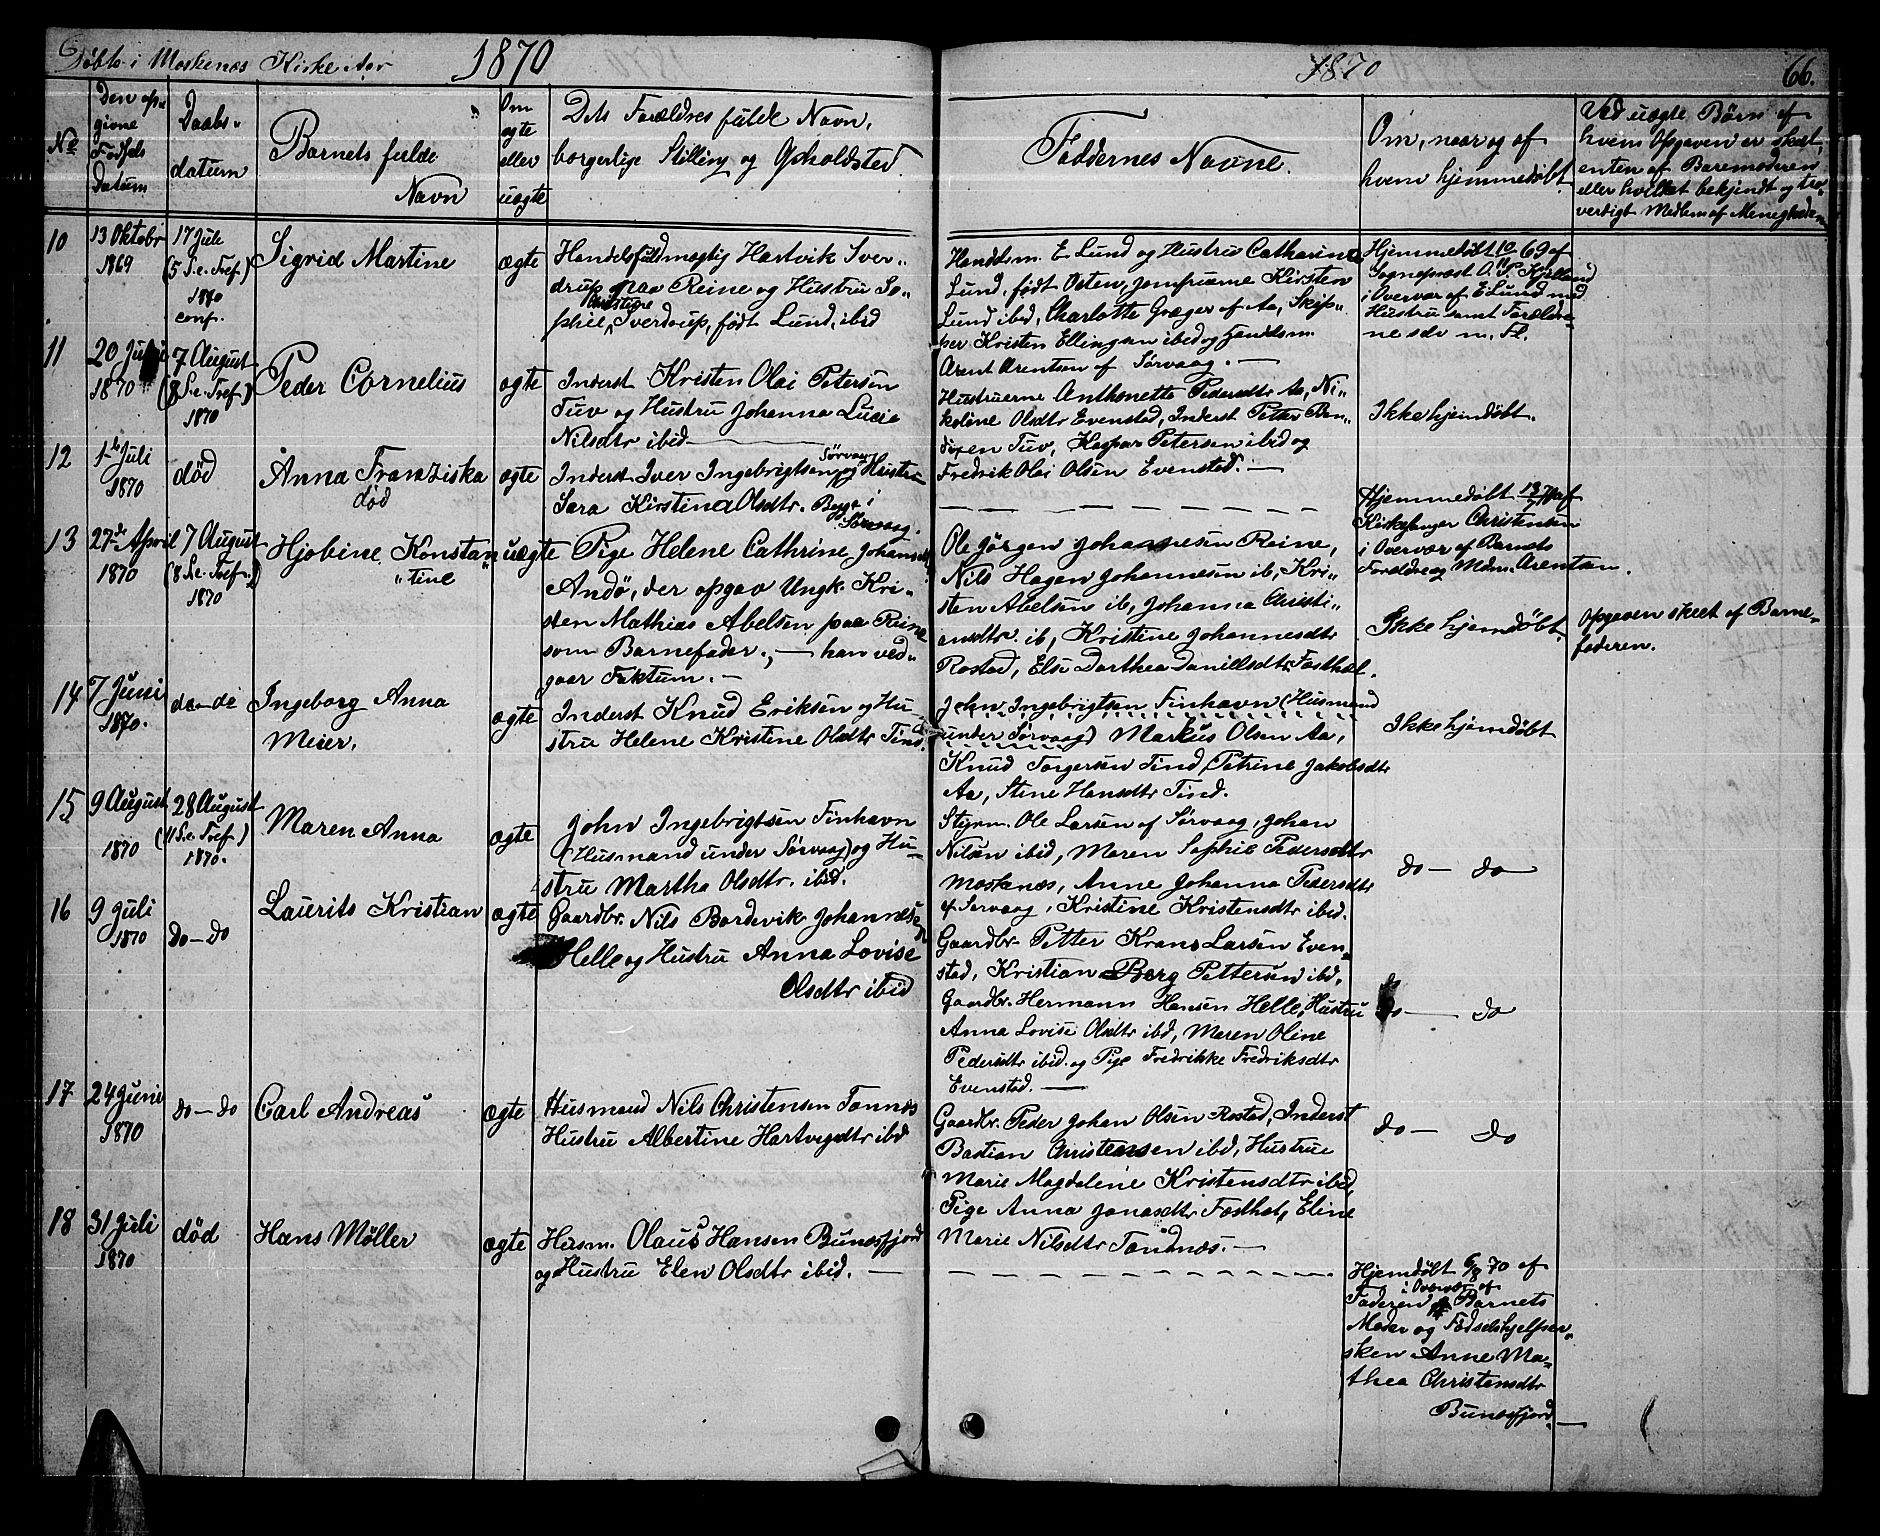 Døbte i Moskenes Kirke Aar 1870
1870
66.
No
Den op-
givne
Fødsels
Datum
Daabs-
datum
Barnets fulde
Navn
Om
ægte
eller
uægte
Dets Forældres fulde Navn,
borgerlige Stilling og Opholdsted.
Faddernes Navne.
Om, naar og af
hvem hjemmedøbt
Ved uægte Børn af
hvem Opgaven er skeet
enten af Barnemoderen
eller hvilket bekjendt og tro-
værdigt Medlem af Menigheden
10
13 Oktobr
1869
17 Juli
(5 S. e. Tref.)
1870
conf.
Sigrid Martine
ægte
Handelsfuldmægtig Hartvik Sver-
drup paa Reine og Hustru So-
phie, Sverdrup, født Lund, ibid
Handelsm. E Lund og Hustru Catharine
Lund, født Osten, jomfruerne Kirsten
Lund ibid, Charlotte Græger af Aa, Skip-
per Kristen Ellingsen ibid og Handelsm.
Arent Arentsen af Sørvaag. —
Hjemmedøbt 10/11 69 af
Sogneprest O. P. Kjelland
i Overvær af E Lund med
Hustru samt Forældre-
ne selv m. Fl.
11
20 Juni
1870
7 August
(8 S. e. Tref.)
1870
Peder Cornelius
ægte
Inderst Kristen Olai Petersen
Tuv og Hustru Johanna Lucie
Nilsdtr ibid —
Hustruerne Anthonette Pedersdtr Aa, Ni-
koline Olsdtr Evenstad, Inderst Petter Pe-
dersen Tuv, Kaspar Petersen ibid og
Fredrik Olai Olsen Evenstad. —
Ikke hjemdøbt.
12
1ste Juli
1870
død
Anna Franziska
død
ægte
Inderst Iver Ingebrigtsen Sørvaag og Hustru
Sara Kirstina Olsdtr. Begge i
Sørvaag.
Hjemmedøbt 13/7 70 af
Kirkesanger Christensen
i Overvær af Barnets
Forældre og Mdm. Arentsen.
13
27de April
1870
7 August
(8 S. e. Tref.)
1870
Hjobine Konstan-
"tine
uægte
Pige Helene Cathrine Johansdtr
Andø, der opgav Ungk. Kri-
sten Mathias Abelsen paa Reine
som Barnefader., — han ved-
gaar Faktum. —
Ole Jørgen Johannesen Reine,
Nils Hagen Johannesen ib, Kri-
sten Abelsen ib, Johanna Christi-
ansdtr. ib, Kristine Johannesdtr
Rostad, Else Dorthea Danielsdtr Fosthæl.
Ikke hjemdøbt
Opgaven skeet af Barne-
faderen.
14
7 Juni
1870.
do — do
Ingeborg Anna
Meier.
ægte
Inderst Knud Eriksen og Hu-
stru Helene Kristine Olsdtr Tind.
John Ingebrigtsen Finhavn (Husmand
under Sørvaag) Markus Olsen Aa,
Knud Torgersen Tind, Petrine Jakobsdtr
Aa, Stine Hansdtr Tind.
Ikke hjemdøbt
15
9 August
1870
28 August
(11 S. e. Tref.)
1870.
Maren Anna
ægte
John Ingebrigtsen Finhavn
(Husmand under Sørvaag) og Hu-
stru Martha Olsdtr. ibid.
Styrm. Ole Larsen af Sørvaag, Johan
Nilsen ibid, Maren Sophie Pedersdtr
Moskenæs, Anne Johanna Pedersdtr
af Sørvaag, Kristine Kristensdtr ibid.
do — do
16
9 Juli
1870
do — do
Laurits Kristian
ægte
Gaardbr. Nils Bordevik Johannesen
Helle og Hustru Anna Lovise
Olsdtr ibid
Gaardbr. Petter Krans Larsen Even-
stad, Kristian Berg Pettersen ibid,
Gaardbr. Hermann Hansen Helle, Hustru
Anna Lovise Olsdtr ibd, Maren Oline
Pedersdtr ibid. og Pige Fredrikke Fredriksdtr
Evenstad. —
do — do
17
24 Juni
1870
do — do
Carl Andreas
ægte
Husmand Nils Christensen Tønnes
Hustru Albertine Hartvigsdtr ibd
Gaardbr. Peder Johan Olsen Rostad, Inderst
Bastian Christensen ibd, Hustrue
Marie Magdalene Kristensdtr ibid,
Pige Anna Jonasdtr Fosthæl, Eline
Marie Nilsdtr Tønnæs. —
do — do
18
31 Juli
1870
død
Hans Møller
ægte
Husm. Olaus Hansen Bunæsfjord
og Hustru Elen Olsdtr ibid. —
Hjemdøbt 6/8 70 af
Faderen i Overvær af Barnets
Moder og Fødselshjelper-
sken Anne Ma-
thea Christensdtr
Bunesfjord —